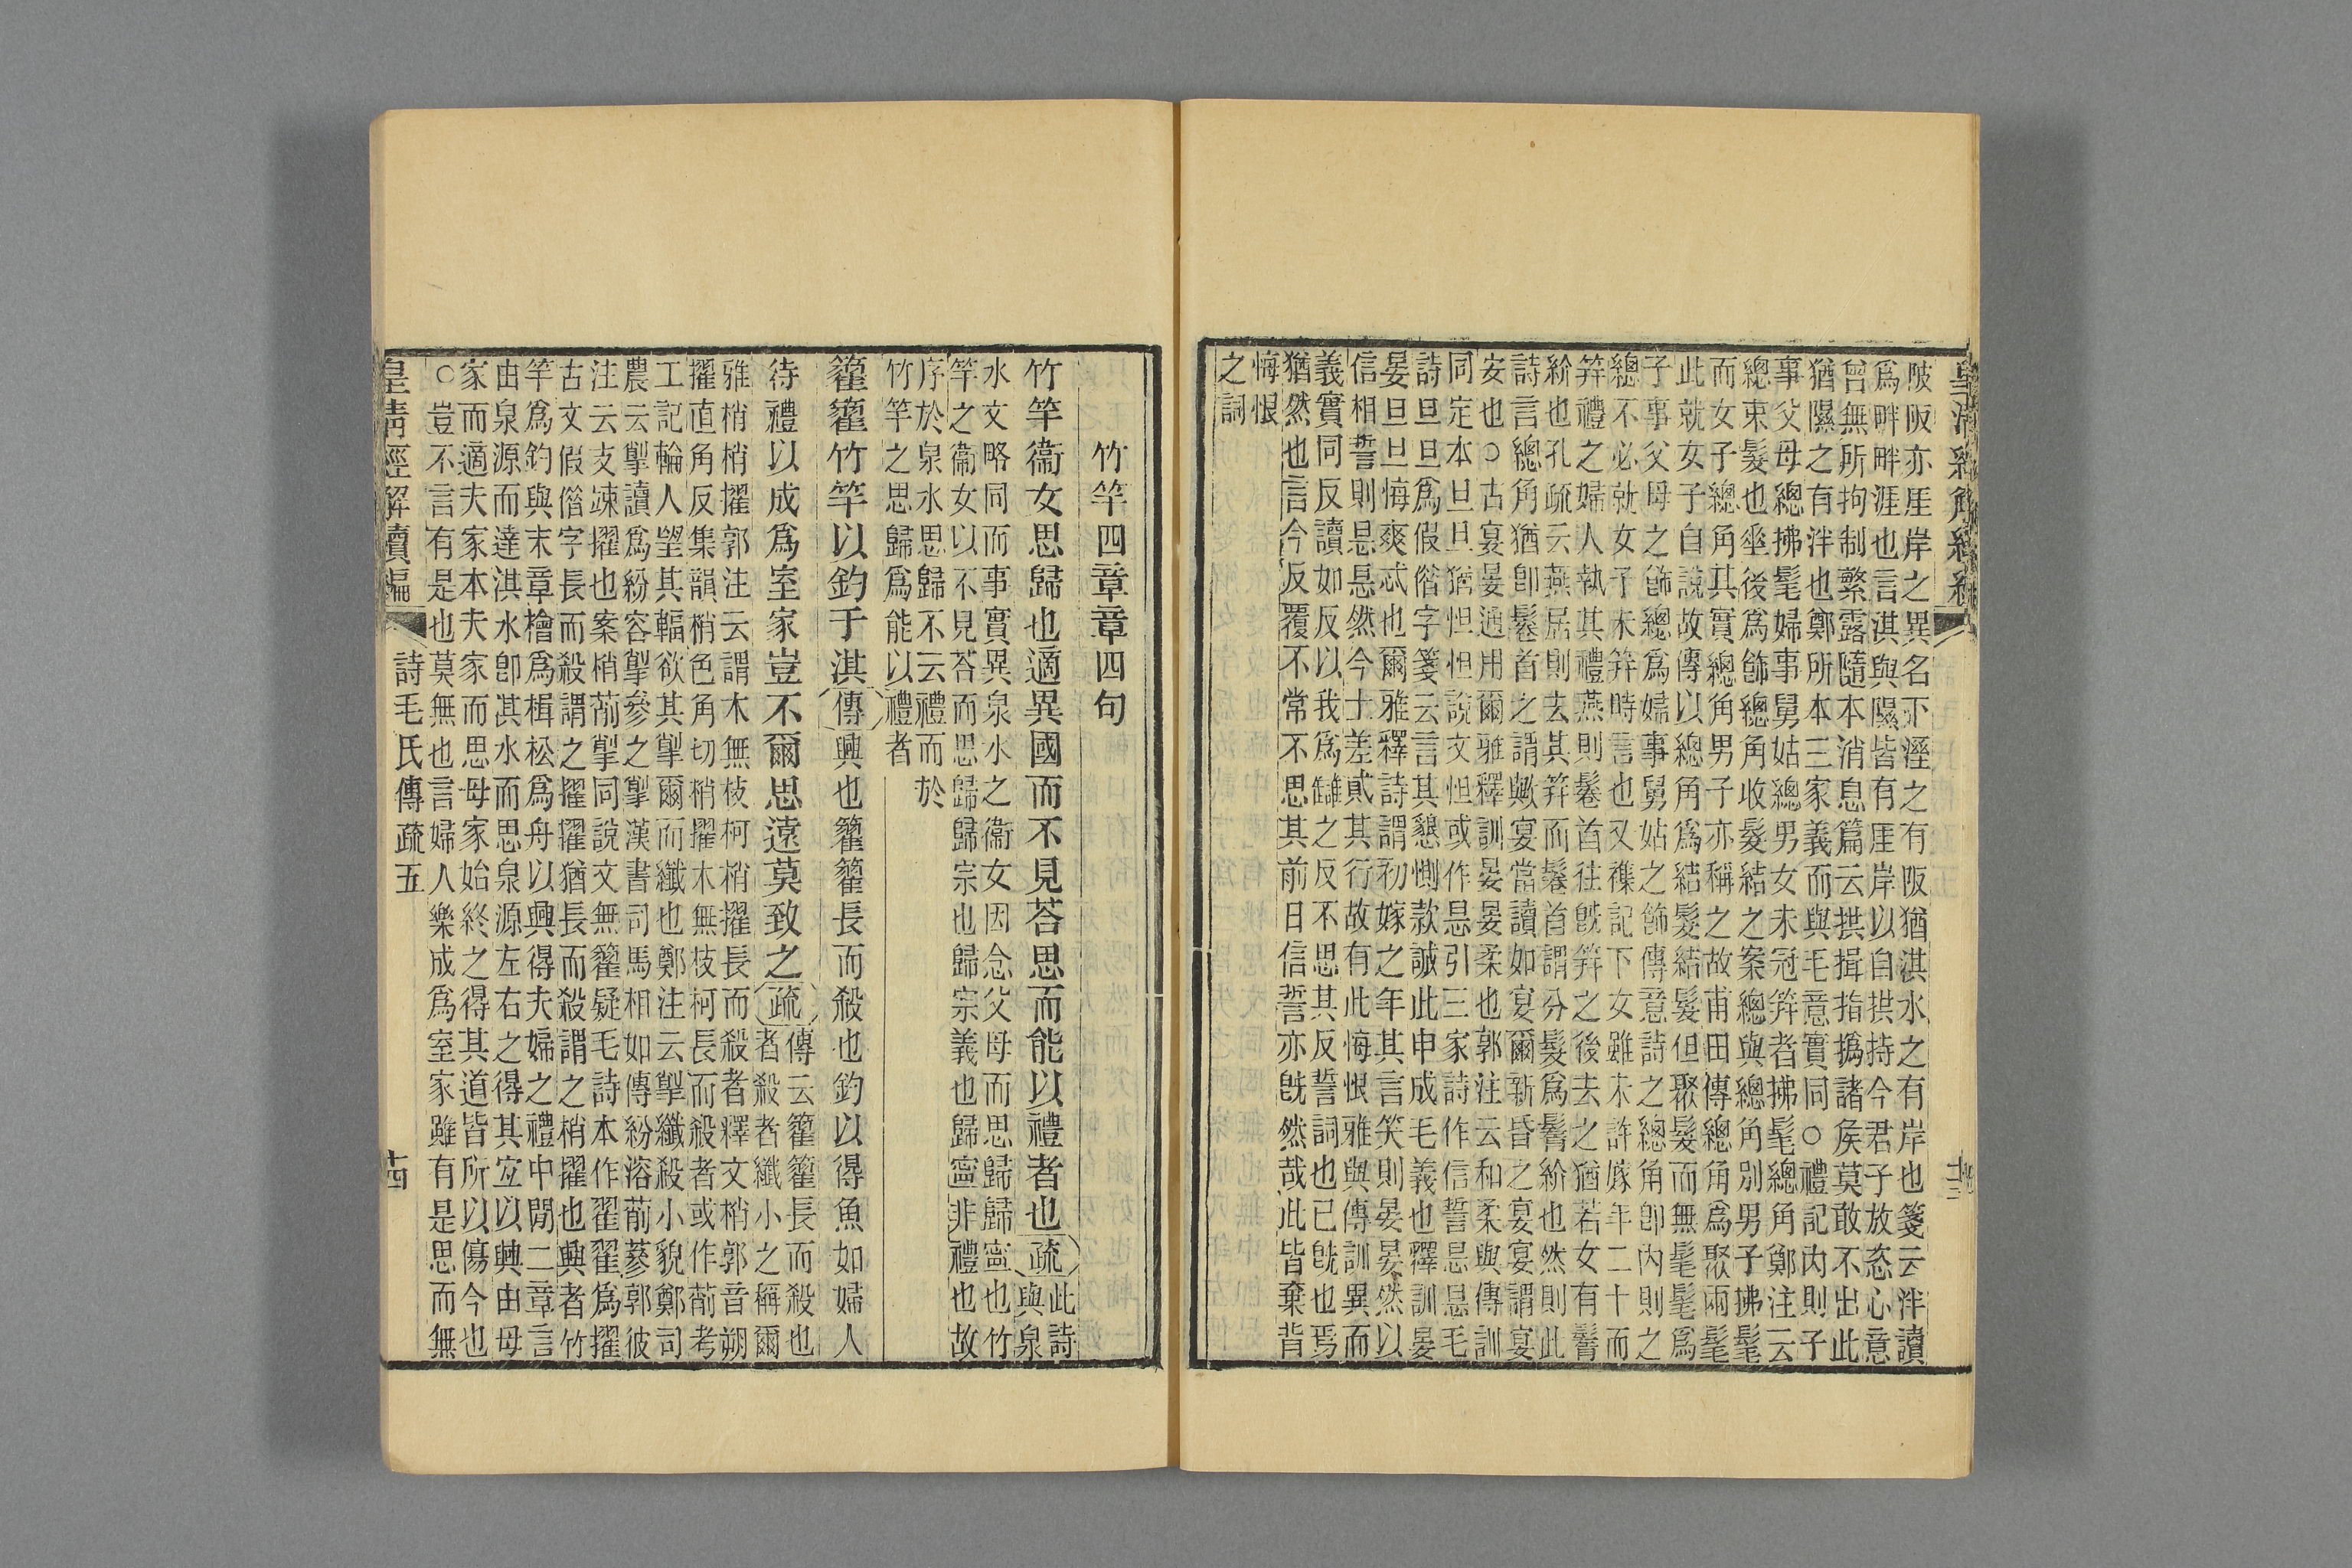 陂阪亦厓岸之異名下溼之有阪猶淇水之有岸也箋云泮讀
爲畔畔涯也言淇與隰皆有厓岸以自拱持今君子放恣心意
曾無所拘制繁露隨本消息篇云拱揖指撝諸矦莫敢不出此
猶隰之有泮也鄭所本三家義而與毛意實同○禮記内則子
事父母總拂髦婦事舅姑總男女未冠筓者拂髦總角鄭注云
總束髮也垂後爲飾總角收髮結之案總與總角別男子拂髦
而女子總角其實總角男子亦稱之故甫田傳總角爲聚兩髦
此就女子自說故傳以總角爲結髮結髮但聚髮而無髦髦爲
子事父母之飾總爲婦事舅姑之飾傳意詩之總角卽内則之
總不必就女子未筓時言也又襍記下女雖未許嫁年二十而
筓禮之婦人執其禮燕則鬈首往旣筓之後去之猶若女有鬌
紒也孔疏云燕居則去其筓而鬈首謂分髮爲鬌紒也然則此
詩言總角猶卽鬈首之謂歟宴當讀如宴爾新昏之宴宴謂宴
安也○古宴晏通用爾雅釋訓晏晏柔也郭注云和柔與傳訓
同定本旦旦猶怛怛說文怛或作悬引三家詩作信誓悬悬毛
詩旦旦爲假借字箋云言其懇惻款誠此申成毛義也釋訓晏
晏旦旦悔爽忒也爾雅釋詩謂初嫁之年其言笑則晏晏然以
信相誓則悬悬然今士差貳其行故有此悔恨雅與傳訓異而
義實同反讀如反以我爲讎之反不思其反誓詞也已旣也焉
猶然也言今反覆不常不思其前日信誓亦旣然哉此皆棄背
悔恨
之詞
竹竿四章章四句
竹竿衞女思歸也適異國而不見荅思而能以禮者也疏此詩
與泉
水文略同而事實異泉水之衞女因念父母而思歸歸寧也竹
竿之衞女以不見荅而思歸歸宗也歸宗義也歸寧非禮也故
序於泉水思歸不云禮而於
竹竿之思歸爲能以禮者
籊籊竹竿以釣于淇傳興也籊籊長而殺也釣以得魚如婦人
待禮以成爲室家豈不爾思遠莫致之疏傳云籊籊長而殺也
者殺者纖小之稱爾
雅梢梢擢郭注云謂木無枝柯梢擢長而殺者釋文梢郭音朔
擢直角反集韻梢色角切梢擢木無枝柯長而殺者或作萷考
工記輪人望其輻欲其掣爾而纖也鄭注云掣纖殺小貌鄭司
農云掣讀爲紛容掣參之掣漢書司馬相如傳紛溶萷蔘郭彼
注云支竦擢也案梢萷掣同說文無籊疑毛詩本作翟翟爲擢
古文假借字長而殺謂之擢擢猶長而殺謂之梢擢也興者竹
竿爲釣與末章檜爲楫松爲舟以興得夫婦之禮中閒二章言
由泉源而達淇水卽淇水而思泉源左右之得其宐以興由母
家而適夫家本夫家而思母家始終之得其道皆所以傷今也
○豈不言有是也莫無也言婦人樂成爲室家雖有是思而無
皇清經解續編
詩毛氏傳疏五
十四